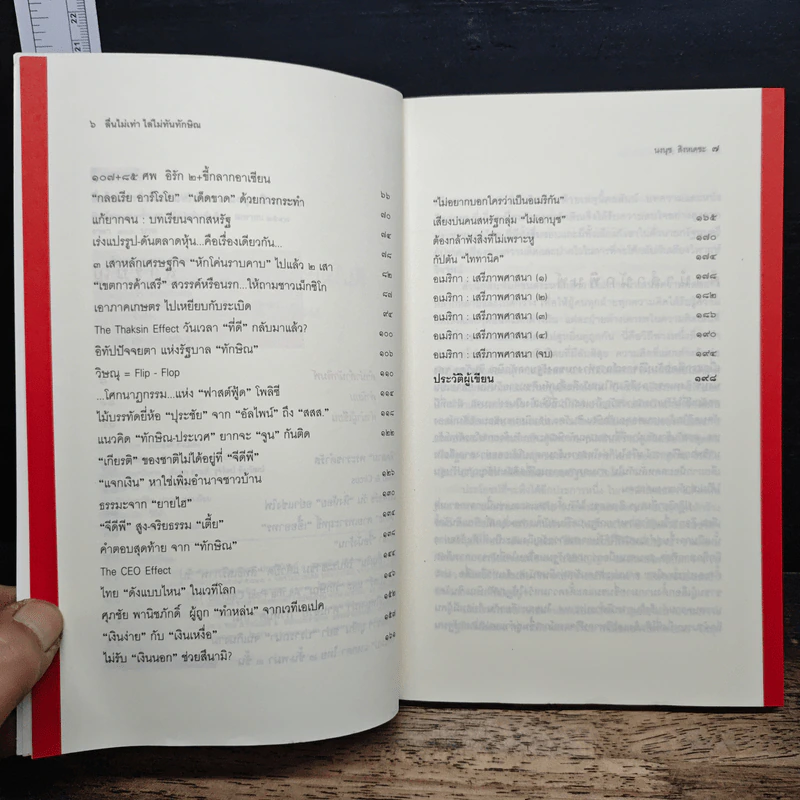 ๖ ลื่นไม่เท่า ไล่ไม่ทันทักษิณ
๑๐๗+๘๕ ศพ อิรัก ๒+ขี้กลากอาเซียน
“กลอเรีย อาร์โรโย” “เด็ดขาด” ด้วยการกระทำ ๖๖
แก้ยากจน : บทเรียนจากสหรัฐ ๗๐
เร่งแปรรูป-ดันตลาดหุ้น...คือเรื่องเดียวกัน... ๗๔
๓ เสาหลักเศรษฐกิจ “หักโค่นราบคาบ” ไปแล้ว ๒ เสา ๗๘
“เขตการค้าเสรี” สวรรค์หรือนรก...ให้ถามชาวเม็กซิโก ๘๒
เอาภาคเกษตร ไปเหยียบกับระเบิด ๘๗
The Thaksin Effect วันเวลา “ที่ดี” กลับมาแล้ว? ๙๔
อิทัปปัจจยตา แห่งรัฐบาล “ทักษิณ” ๑๐๐
วิษณุ = Flip - Flop ๑๐๖
...โศกนาฏกรรม...แห่ง “ฟาสต์ฟู้ด” โพลิซี ๑๑๐
ไม้บรรทัดยี่ห้อ “ปุระชัย” จาก “อัลไพน์” ถึง “สสส.” ๑๑๔
แนวคิด “ทักษิณ-ประเวศ” ยากจะ “จูน” กันติด ๑๑๘
“เกียรติ” ของชาติไม่ได้อยู่ที่ “จีดีพี” ๑๒๒
“แจกเงิน” หาใช่เพิ่มอำนาจชาวบ้าน ๑๒๖
ธรรมะจาก “ยายไฮ” ๑๓๐
“จีดีพี” สูง-จริยธรรม “เตี้ย” ๑๓๔
คำตอบสุดท้าย จาก “ทักษิณ” ๑๓๘
The CEO Effect ๑๔๔
ไทย “ดังแบบไหน” ในเวทีโลก ๑๔๖
ศุภชัย พานิชภักดิ์ ผู้ถูก “ทำหล่น” จากเวทีเอเปค ๑๕๒
“เงินง่าย” กับ “เงินเหงื่อ” ๑๕๗
ไม่รับ “เงินนอก” ช่วยสึนามิ? ๑๖๑
นงนุช สิงหเดชะ ๗
“ไม่อยากบอกใครว่าเป็นอเมริกัน”
เสียงบ่นคนสหรัฐกลุ่ม “ไม่เอาบุช” ๑๖๕
ต้องกล้าฟังสิ่งที่ไม่เพราะหู ๑๗๐
กัปตัน “ไททานิค” ๑๗๔
อเมริกา : เสรีภาพศาสนา (๑) ๑๗๘
อเมริกา : เสรีภาพศาสนา (๒) ๑๘๒
อเมริกา : เสรีภาพศาสนา (๓) ๑๘๖
อเมริกา : เสรีภาพศาสนา (๔) ๑๙๐
อเมริกา : เสรีภาพศาสนา (จบ) ๑๙๔
ประวัติผู้เขียน ๑๙๘
21
22